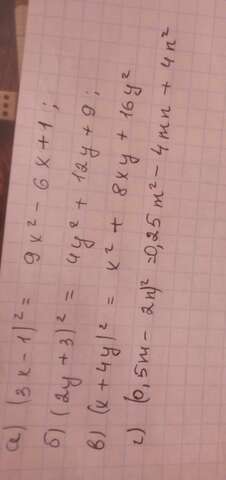 а) (3x-1)² = 9x² - 6x + 1;
б) (2y + 3)² = 4y² + 12y + 9;
в) (x + 4y)² = x² + 8xy + 16y²
г) (0,5m - 2n)² = 0,25m² - 4mn + 4n²